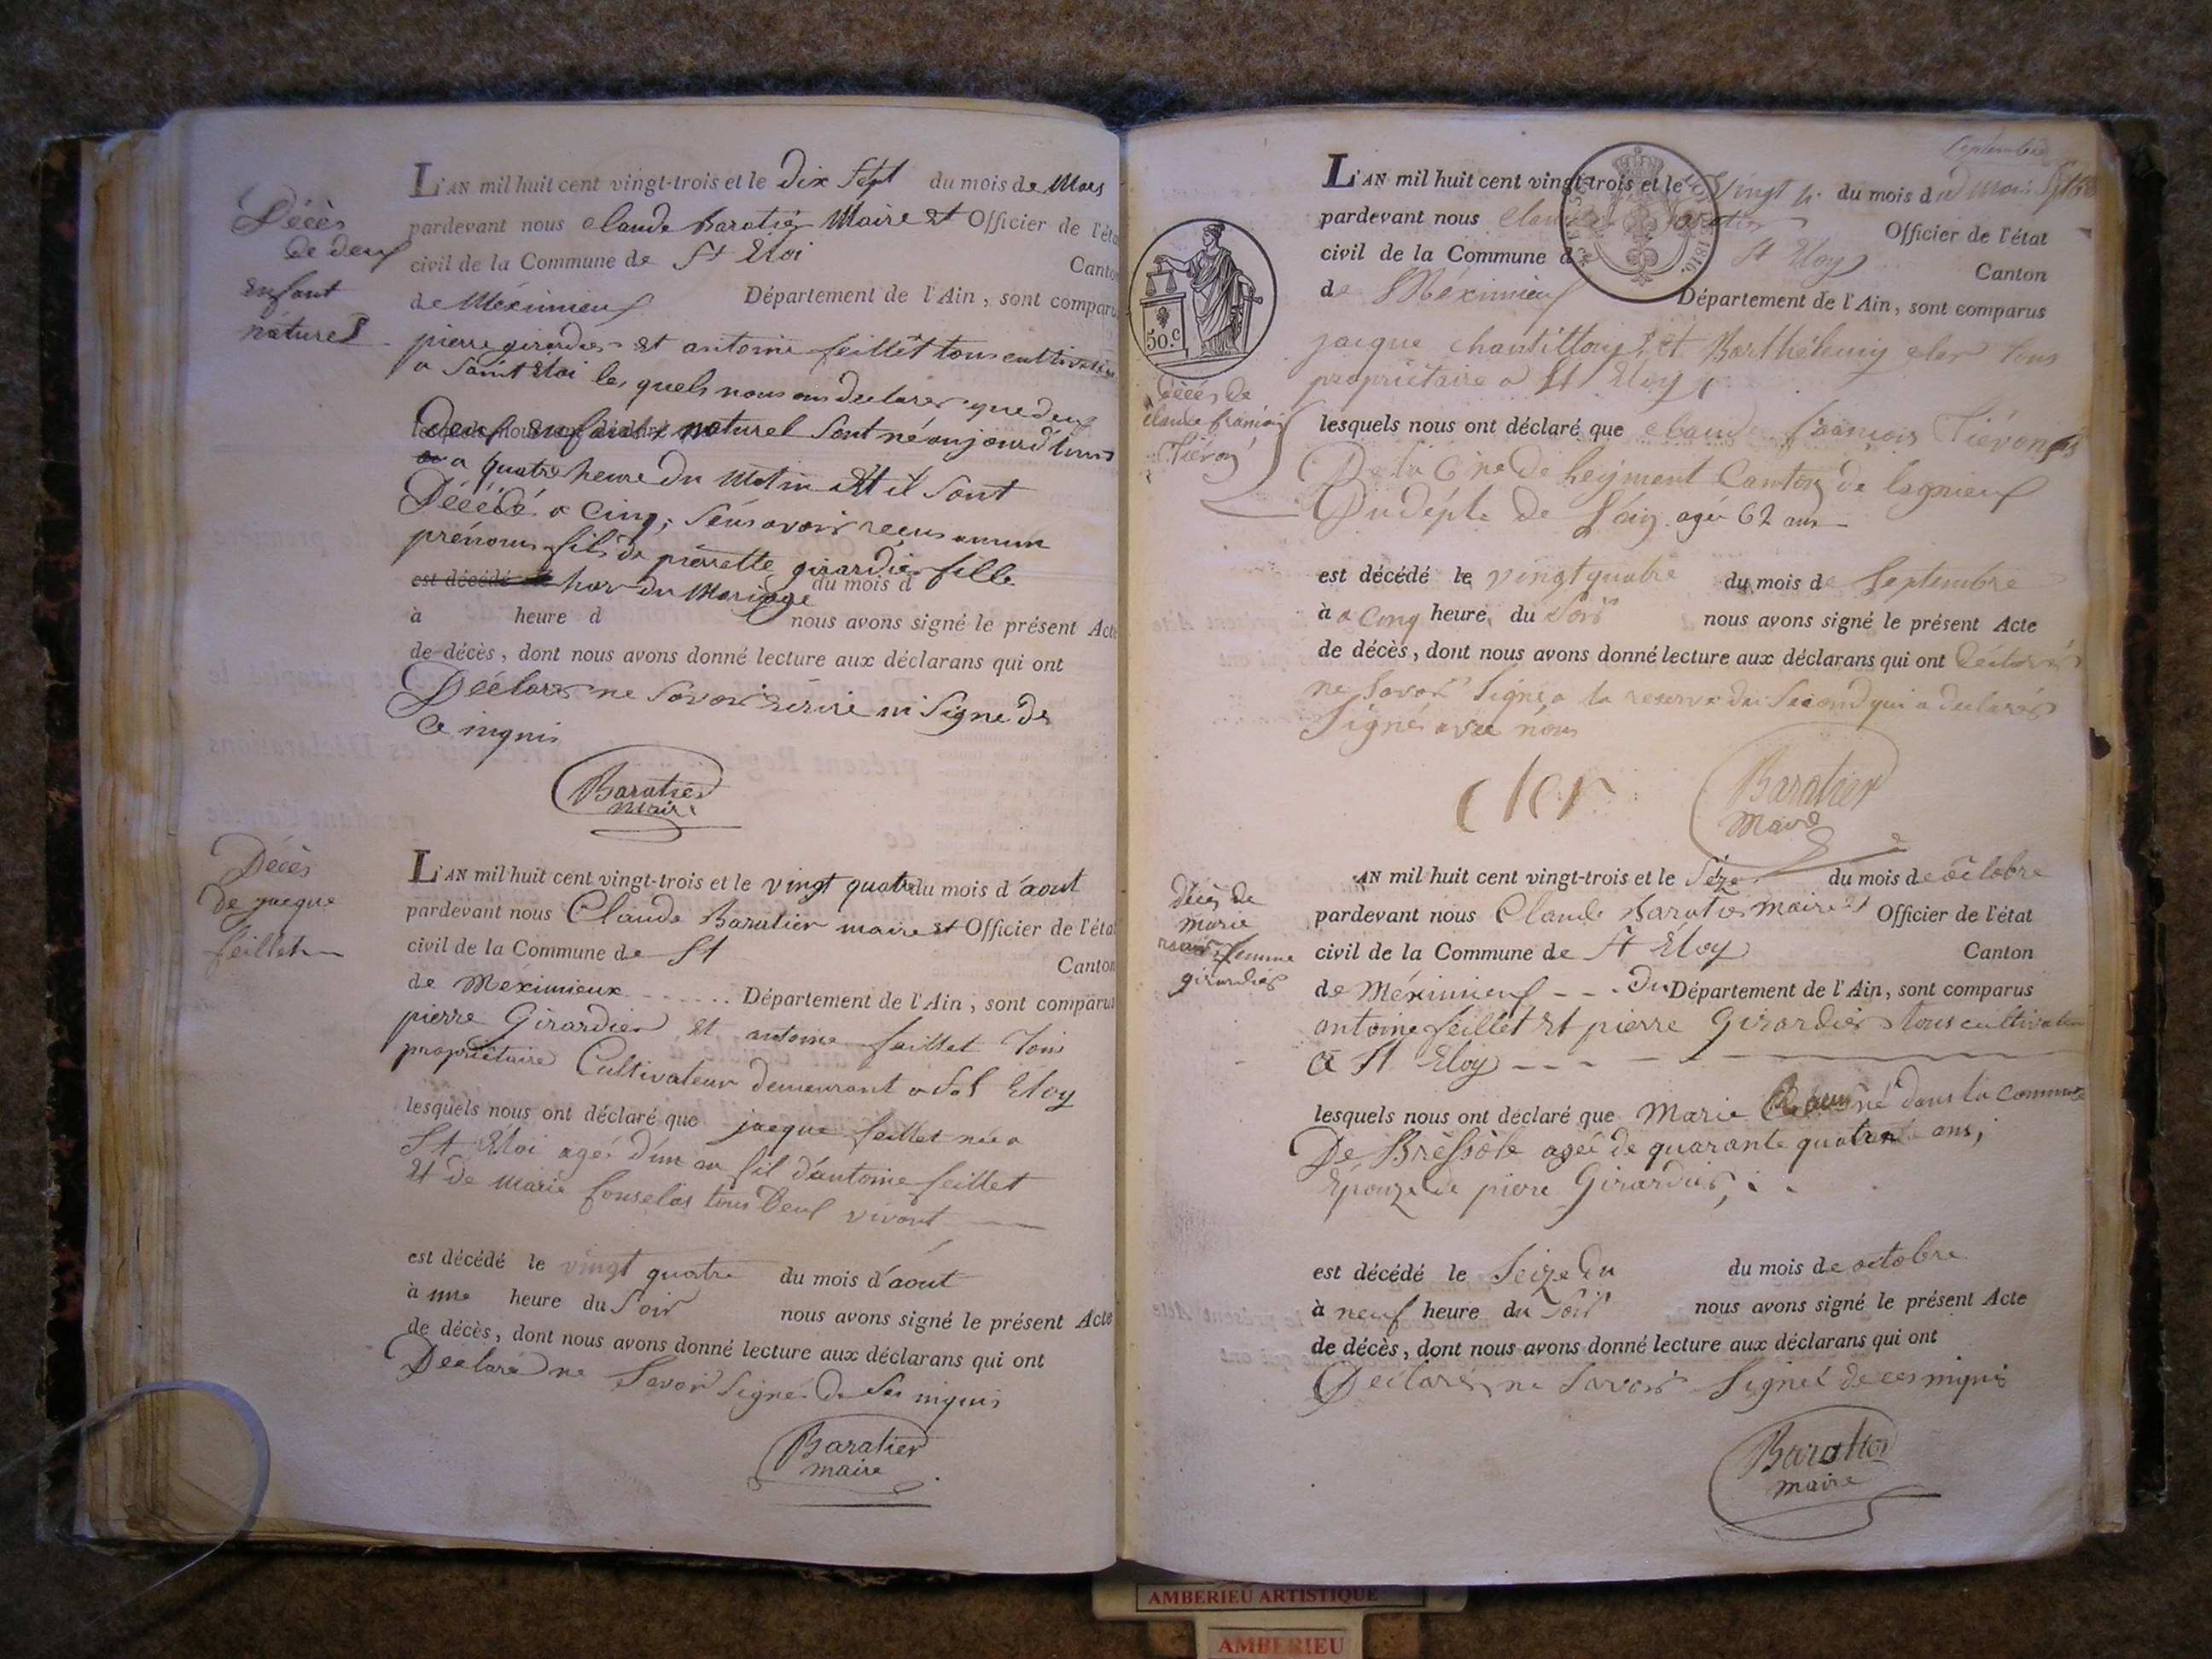 Décès
de deux
enfant
naturel
L'AN mil huit cent vingt-trois et le dix sept du mois de Mars
pardevant nous claude Baratier Maire et Officier de l'éta
civil de la Commune de St Eloi Canto
de Méximieux Département de l'Ain, sont comparu
pierre girardier et antoine feillet tous cultivateur
a Saint Eloi les quels nous ons declarer que deux
Deux enfants naturel sont né aujourd'huis
a quatre heure du Matin Et il sont
Décédé a cinq, sens avoir recus aucun
prénoms fils de pierrette girardier fille
est décédé le hors du Mariage du mois d
à heure d nous avons signé le présent Acte
de décès, dont nous avons donné lecture aux déclarans qui ont
Déclarer ne savoir écrire ni signe de
ce inquis
Baratier
maire
Décès
de jacque
feillet
L'AN mil huit cent vingt-trois et le vingt quatre du mois d'aout
pardevant nous Claude Baratier maire et Officier de l'éta
civil de la Commune de St Canton
de Méximieux Département de l'Ain, sont comparus
pierre Girardier et antoine feillet Tous
propriétaire Cultivateur demeurant a St Eloy
lesquels nous ont déclaré que jacque feillet née a
St Eloi agé d'un an fil d'antoine feillet
Et de Marie tous Deux vivant
est décédé le vingt quatre du mois d'aout
à une heure du Soir nous avons signé le présent Acte
de décès, dont nous avons donné lecture aux déclarans qui ont
Declaré ne Savoir Signé De Ses inquis
Baratier
maire
Septembre
L'AN mil huit cent vingt-trois et le Vingt du mois d
pardevant nous Claude Baratier Officier de l'état
civil de la Commune d St Eloy Canton
de Méximieux Département de l'Ain, sont comparus
1816.
50.C
jacque et Barthélemy cler tous
propriétaire a St Eloy
Décès de
claude françois
Tiévon
lesquels nous ont déclaré que claude françois Tiévon
De la Cne De Leyment Canton de lagnieux
Du dépt. de L'ain agé 62 ans
est décédé le vingt quatre du mois de Septembre
à a cinq heure du Soir nous avons signé le présent Acte
de décès, dont nous avons donné lecture aux déclarans qui ont Déclarés
ne Savoir Signé a la reserve du Second qui a declarer
Signé avec nous
cler
Baratier
Maire
Décès de
Marie
femme
girardier
AN mil huit cent vingt-trois et le Séze du mois de octobre
pardevant nous Claude Baratier maire et Officier de l'état
civil de la Commune de St Eloy Canton
de Méximieux Du Département de l'Ain, sont comparus
antoine feillet Et pierre Girardier tous cultivateur
a St Eloy
lesquels nous ont déclaré que Marie né dans la commune
De Bressole agée de quarante quatre ans,
Epouze de piere Girardier,
est décédé le Seize du du mois de octobre
à neuf heure du Soir nous avons signé le présent Acte
de décès, dont nous avons donné lecture aux déclarans qui ont
Déclarer ne Savoir Signé de ces inquis
Baratier
maire
AMBERIEU ARTISTIQUE
AMBERIEU